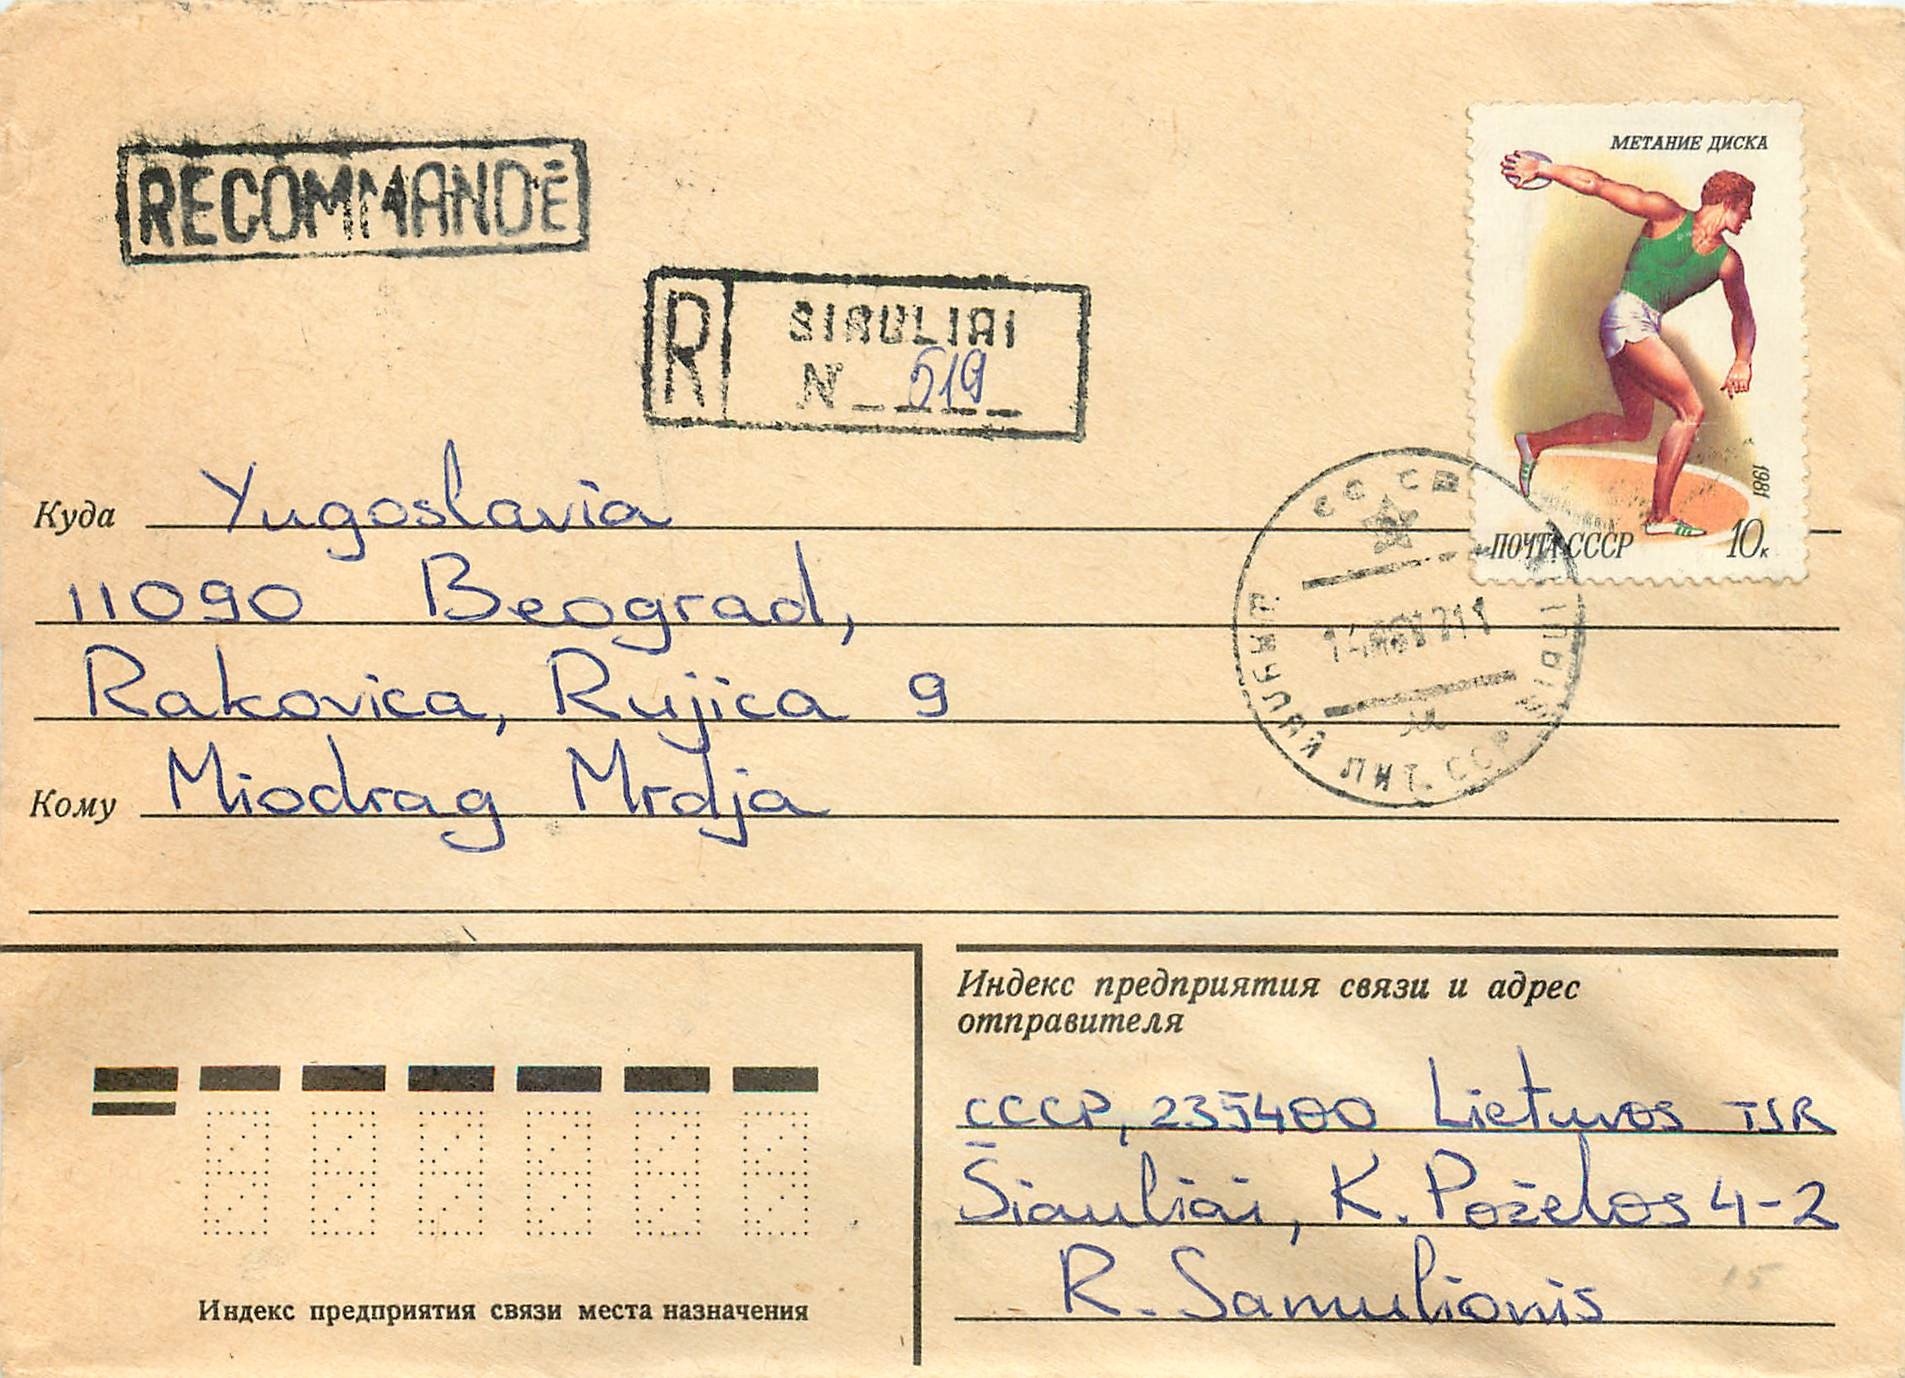 RECOMMANDÉ
МЕТАНИЕ ДИСКА
R SIAULIAI
N 519
1981
ПОЧТА СССР 10к
Куда Yugoslavia
11090 Beograd,
Rakovica, Rujica 9
Кому Miodrag Mrdja
ЛИТ. ССР
Индекс предприятия связи и адрес
отправителя
СССР, 235400 Lietuvos TSR
Šiauliai, K. Poželos 4-2
R. Samulionis
15
Индекс предприятия связи места назначения